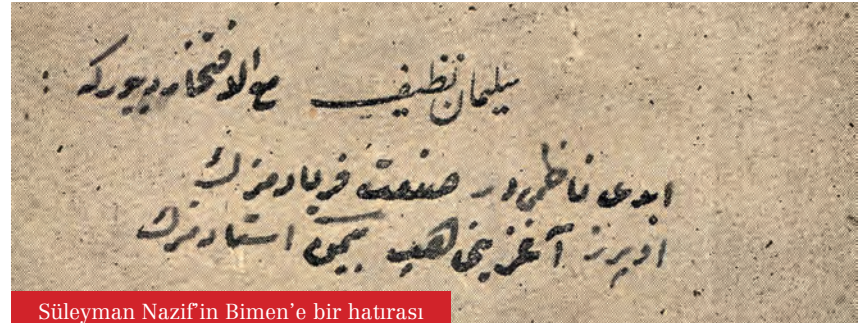 سليمان نظيف مع الافتخار ديوركه :
ابدی ناظمی در صنعت فریادمزك
اوپرز آغزینی هپ بیمن استادمزك
Süleyman Nazif’in Bimen’e bir hatırası